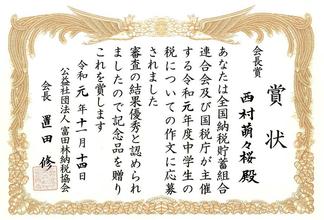 賞状
会長賞
西村萌々桜 殿
あなたは全国納税貯蓄組合
連合会及び国税庁が主催
する令和元年度中学生の
税についての作文に応募
されました
審査の結果優秀と認められ
ましたので記念品を贈り
これを賞します
令和元年十一月十四日
公益社団法人富田林納税協会
会長 置田 修